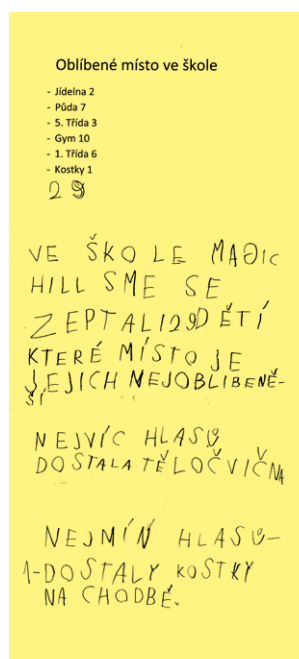 Oblíbené místo ve škole
- Jídelna 2
- Půda 7
- 5. Třída 3
- Gym 10
- 1. Třída 6
- Kostky 1
29
VE ŠKOLE MAGIC
HILL SME SE
ZEPTALI 29 DĚTÍ
KTERÉ MÍSTO JE
JEJICH NEJOBLIBENĚ-
ŠÍ
NEJVÍC HLASŮ
DOSTALA TĚLOČVIČNA
NEJMÍŇ HLASŮ-
1-DOSTALY KOSTKY
NA CHODBĚ.